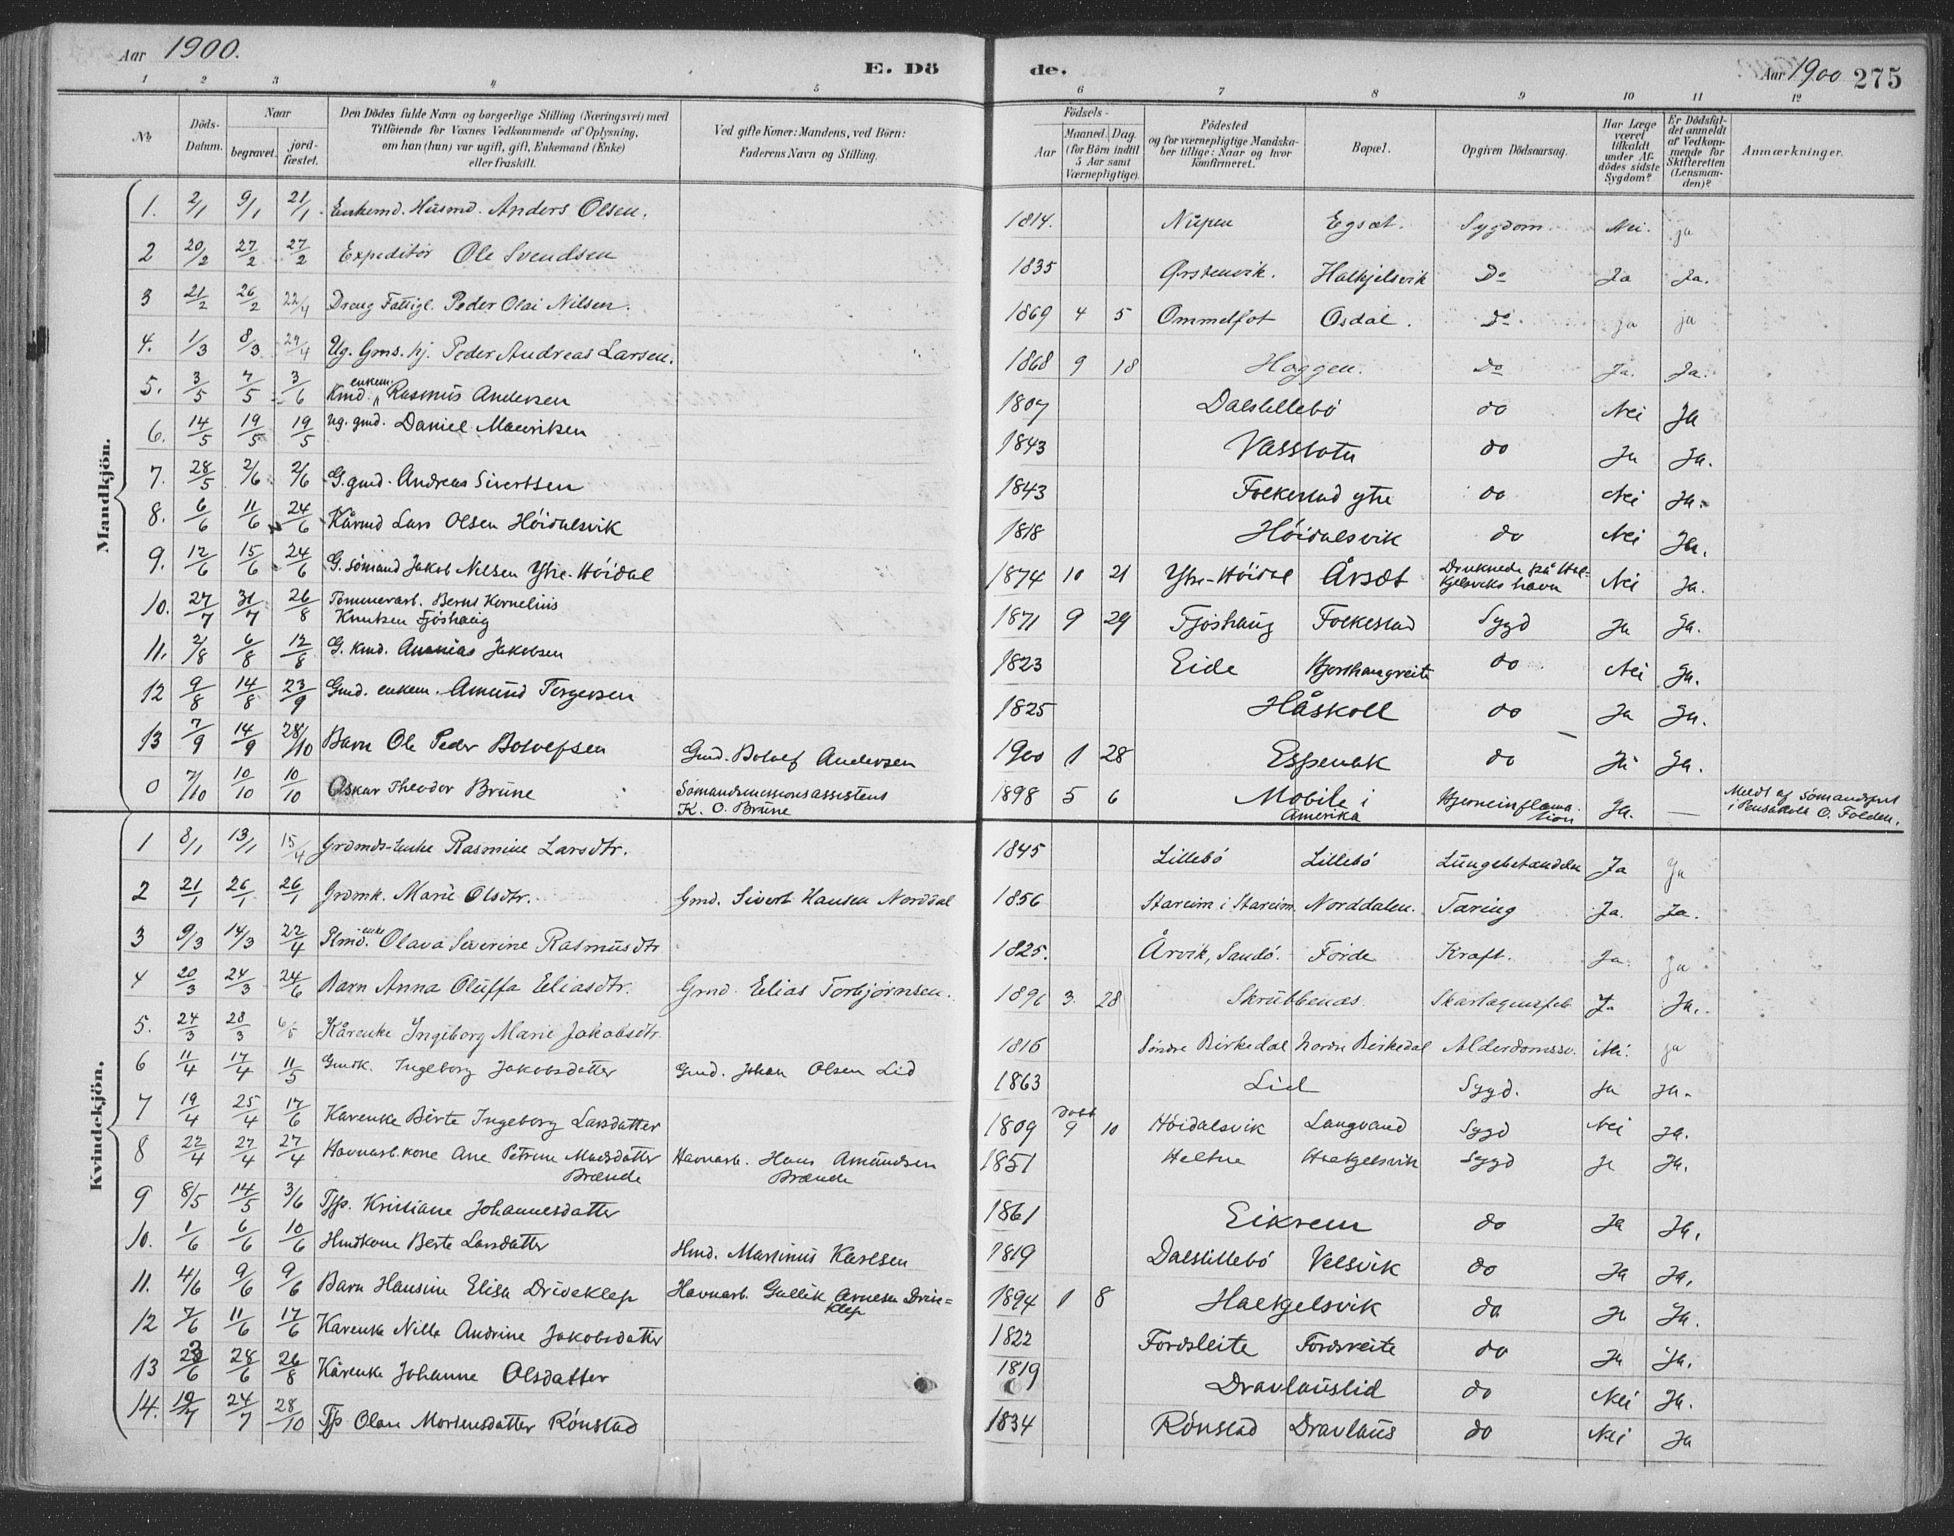 Aar 1900.
E. Dö de.
Aar 1900 275
1 2 3 4 5 6 7 8 9 10 11 12
No. Döds-Datum. Naar begravet. jordfæstet. Den Dödes fulde Navn og borgerlige Stilling (Næringsvei) med Tilföiende for Voxnes Vedkommende af Oplysning, om han (hun) var ugift, gift, Enkemand (Enke) eller fraskilt. Ved gifte Koner: Mandens, ved Börn: Faderens Navn og Stilling. Födsels- Aar Maaned. Dag. (for Börn indtil 5 Aar samt Værnepligtige). Födested og for værnepligtige Mandskaber tillige: Naar og hvor Konfirmeret. Bopæl. Opgiven Dödsaarsag. Har Læge været tilkaldt under Afdödes sidste Sygdom? Er Dödsfaldet anmeldt af Vedkommende for Skifteretten (Lensmanden)? Anmærkninger.
Mandkjön.
1. 2/1 9/1 21/1 Enkemd. Husmd. Anders Olsen. 1814. Nupen Egsæt. Sygdom. Nei. ja
2 20/2 27/2 27/2 Expeditör Ole Svendsen 1835 Ørstenvik. Halkjelsvik Do Ja Ja.
3 21/2 26/2 22/4 Dreng Fattigl. Peder Olai Nilsen. 1869 4 5 Ommelfot Osdal. Do. ja ja
4. 1/3 8/3 29/4 Ug. Gms. hj. Peder Andreas Larsen. 1868 9 18 Haggen. Do Ja. Ja.
5. 3/5 7/5 3/6 Kmd. enkem. Rasmus Andersen 1807 Dalslillebö do Nei Ja
6. 14/5 19/5 19/5 Ug. gmd. Daniel Mauritsen 1843 Vassbotn do Ja Ja.
7. 28/5 2/6 2/6 G. gmd. Andreas Sivertsen 1843 Folkestad ytre do Nei Ja.
8. 6/6 11/6 24/6 Kårmd Lars Olsen Höidalsvik 1818 Höidalsvik do Nei Ja.
9. 12/6 15/6 24/6 G. sömand Jakob Nilsen Ytre-Höidal 1874 10 21 Ytre-Höidal Årsæt Druknede på Halkjelsviks havn Nei Ja.
10. 27/7 31/7 26/8 Tömmerarb. Bernt Kornelius Knutsen Fjöshaug 1871 9 29 Fjöshaug Folkestad Sygd Ja Ja.
11. 2/8 6/8 12/8 G. kmd. Ananias Jakobsen 1823 Eide Hjorthaugreite do Nei Ja.
12 9/8 14/8 23/9 Gmd. enkem. Amund Torgersen 1825 Håskoll do Ja Ja.
13 7/9 14/9 28/10 Barn Ole Peder Botolfsen Gmd. Botolf Andersen 1900 1 28 Espenak do Ja Ja.
0 7/10 10/10 10/10 Oskar Theodor Brune Sömandsmissionsassistent K. O. Brune 1898 5 6 Mobile i Amerika Hjerneinflamation Ja. — Meldt af Sömandsprst i Pensakola O. Folden.
Kvindekjön.
1 8/1 13/1 15/4 Grdmds-Enke Rasmine Larsdtr. 1845 Lillebö Lillebö Lungebetændelse Ja Ja
2 21/1 26/1 26/1 Grdmk. Marie Olsdtr. Gmd. Sivert Hansen Norddal 1856 Stareim i Stareim. Norddalen. Tæring Ja. Ja.
3 9/3 14/3 22/4 Plmd. enke Olava Severine Rasmusdtr 1825. Årvik, Sandö. Förde Kræft. Ja. ja
4 20/3 24/3 24/6 Barn Anna Oluffa Eliasdtr. Gmd. Elias Torbjörnsen. 1896 3. 28 Skrubbenæs. Skarlagensfeb. Ja Ja.
5. 24/3 28/3 6/5 Kårenke Ingeborg Marie Jakobsdtr. 1816 Söndre Birkedal Nordre Birkedal Alderdomssv. Nei. ja
6 11/4 17/4 11/5 Gmdk. Ingeborg Jakobsdatter Gmd. Johan Olsen Lid 1863 Lid Sygd. Ja Ja.
7 19/4 25/4 17/6 Karenke Berte Ingeborg Larsdatter 1809 döbt 9 10 Höidalsvik Langvand Sygd Nei Ja.
8 22/4 27/4 27/4 Havnarb. kone Ane Petrine Madsdatter Brænde Havnarb. Hans Amundsen Brænde 1851 Heltne Halkjelsvik Sygd Ja Ja.
9 8/5 14/5 3/6 Tjp. Kristiane Johannesdatter 1861 Eikrem do Ja Ja.
10. 1/6 6/6 10/6 Hmdkone Berte Larsdatter Hmd. Martinus Karlsen 1819 Dalslillebö Velsvik do Ja Ja.
11. 4/6 9/6 9/6 Barn Hansine Elisa Driveklep Havnarb. Gullik Arnesen Driveklep 1894 1 8 Halkjelsvik do Ja Ja.
12 7/6 11/6 17/6 Karenke Nille Andrine Jakobsdatter 1822 Fordsleite Fordsreite do Ja Ja.
13 23/6 28/6 26/8 Kårenke Johanne Olsdatter 1819 Dravlauslid do Nei Ja.
14. 19/7 24/7 28/10 Tjp Olane Mortensdatter Rönstad 1834 Rönstad Dravlaus do Nei Ja